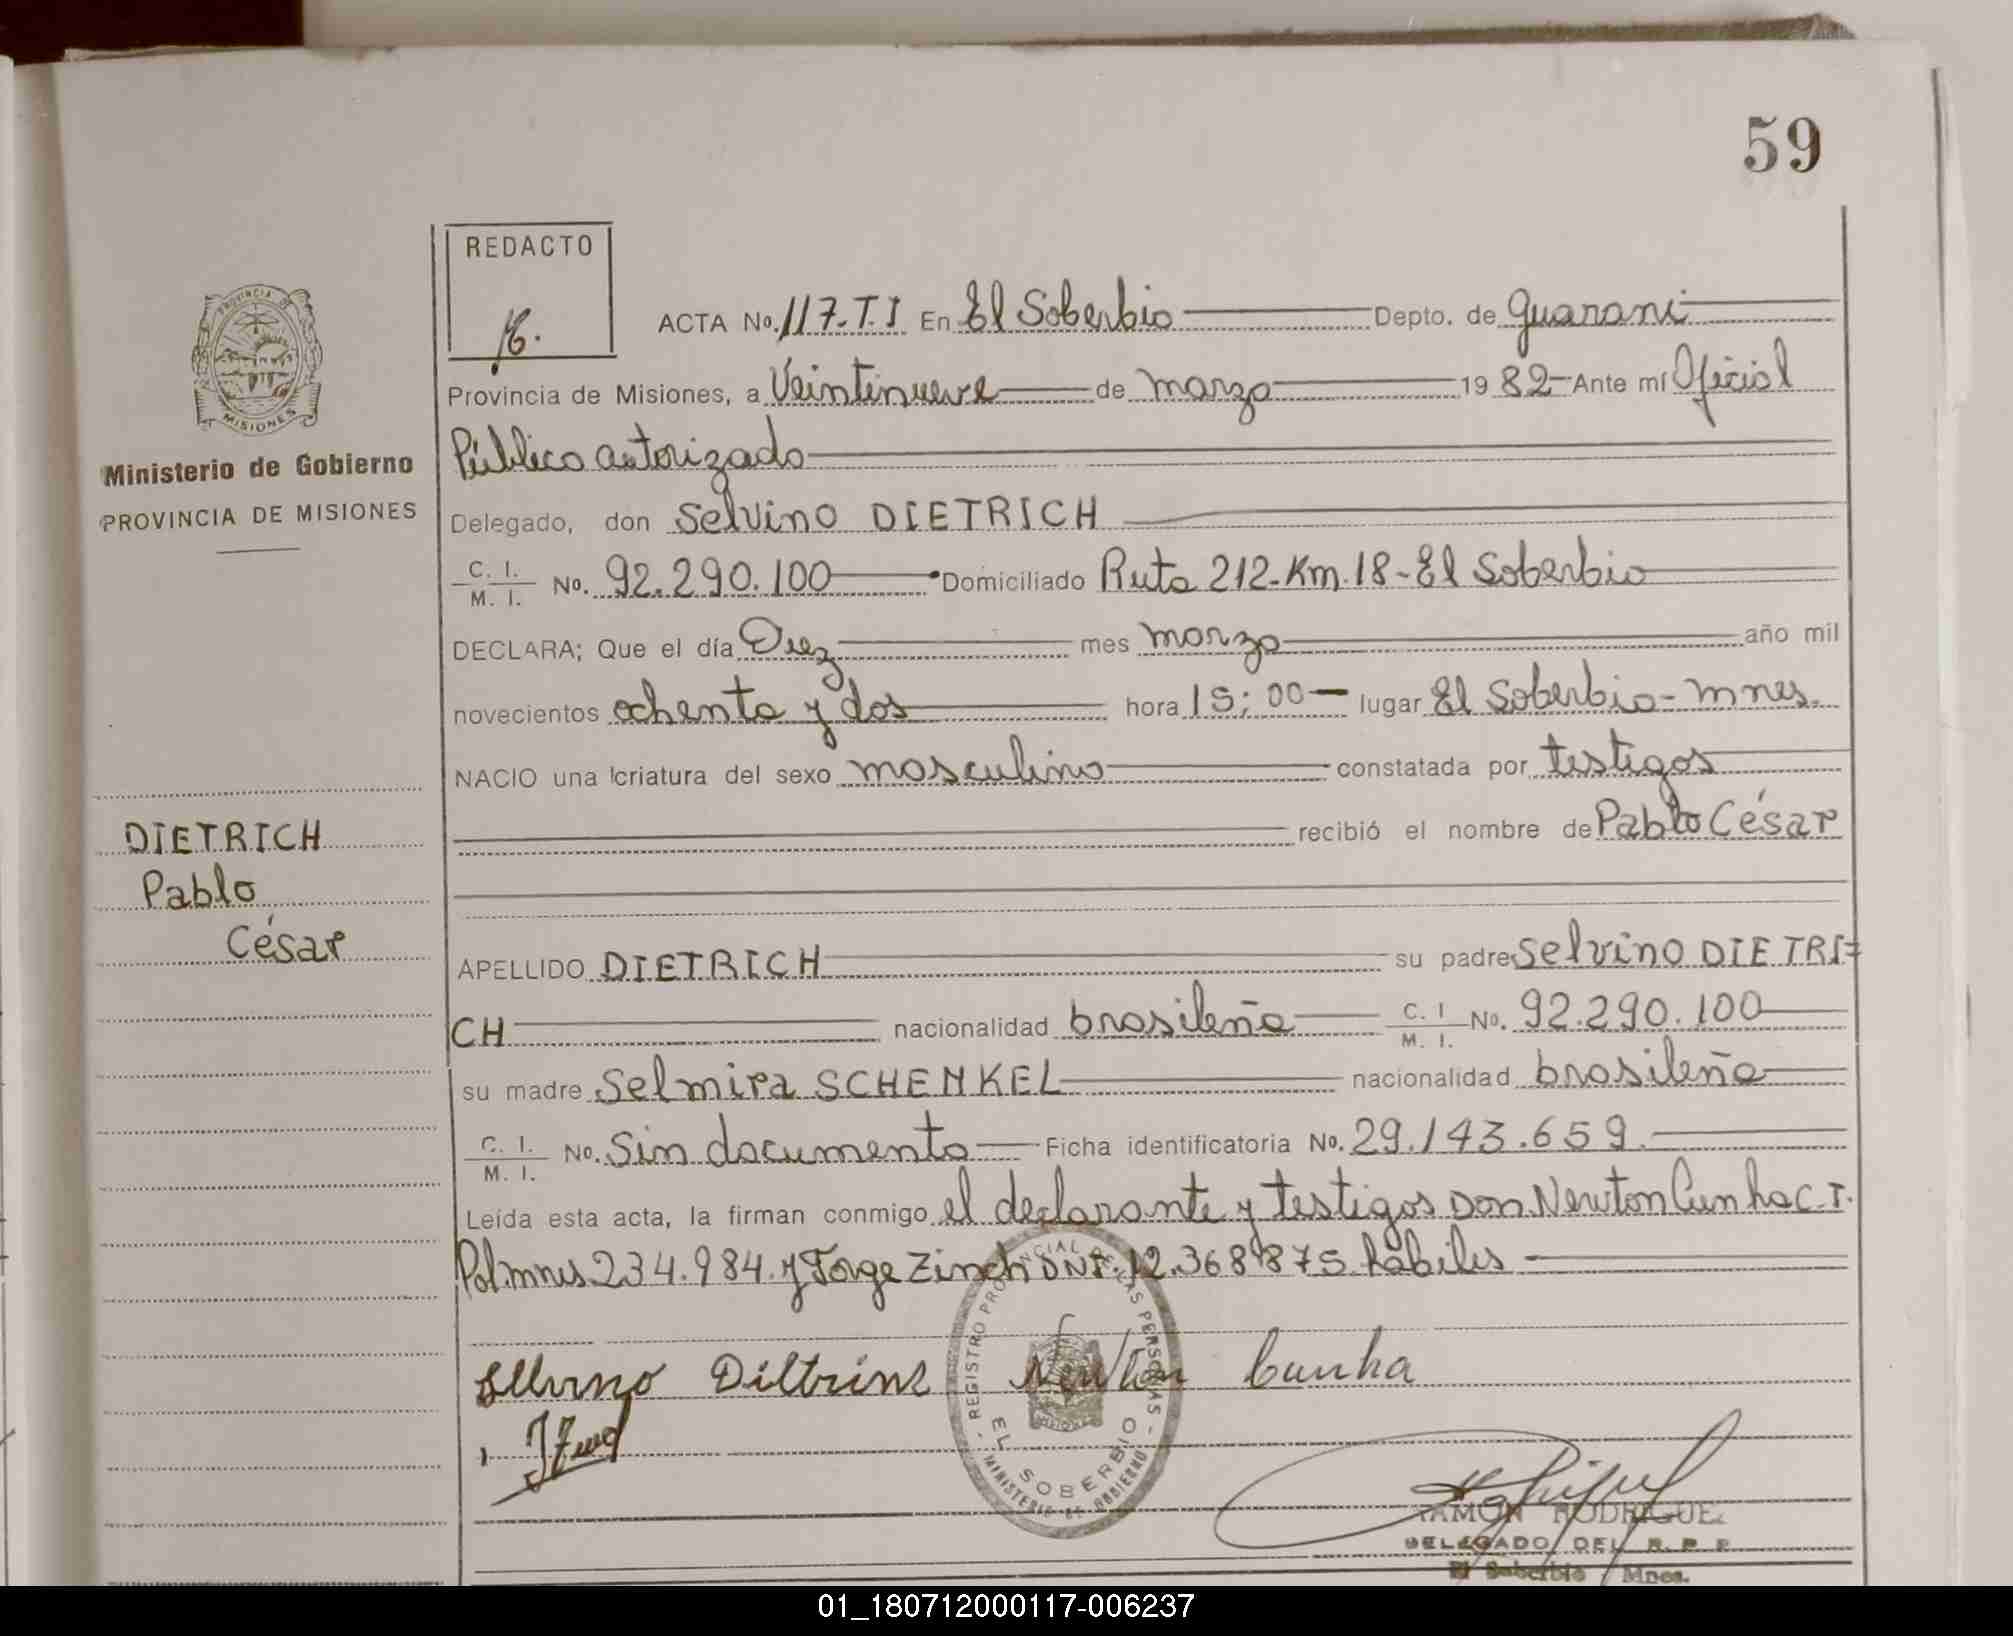 59
REDACTO
PROVINCIA DE
MISIONES
Ministerio de Gobierno
PROVINCIA DE MISIONES
ACTA No. 117.T.I En El Soberbio Depto. de Guarani
Provincia de Misiones, a Veintinueve de marzo 1982 Ante mí Oficial
Público autorizado
Delegado, don Selvino DIETRICH
C. I.
M. I. No. 92.290.100 Domiciliado Ruta 212-Km.18-El Soberbio
DECLARA; Que el día Diez mes marzo año mil
novecientos ochenta y dos hora 15:00 lugar El Soberbio-Mnes.
NACIO una criatura del sexo masculino constatada por testigos
recibió el nombre de Pablo César
DIETRICH
Pablo
César
APELLIDO DIETRICH su padre Selvino DIETRI=
CH nacionalidad brasileña C. I
M. I. No. 92.290.100
su madre Selmira SCHENKEL nacionalidad brasileña
C. I.
M. I. No. Sin documento Ficha identificatoria No. 29.143.659.
Leída esta acta, la firman conmigo el declarante y testigos Don Newton Cunha C.I.
Pol.mnes 234.984.y Jorge Zinch DNI.12.368.875 hábiles
Newton Cunha
REGISTRO PROVINCIAL DE LAS PERSONAS
EL SOBERBIO
MINISTERIO DE GOBIERNO
RAMON RODRIGUEZ
DELEGADO DEL R. P. P.
El Soberbio Mnes.
01_180712000117-006237